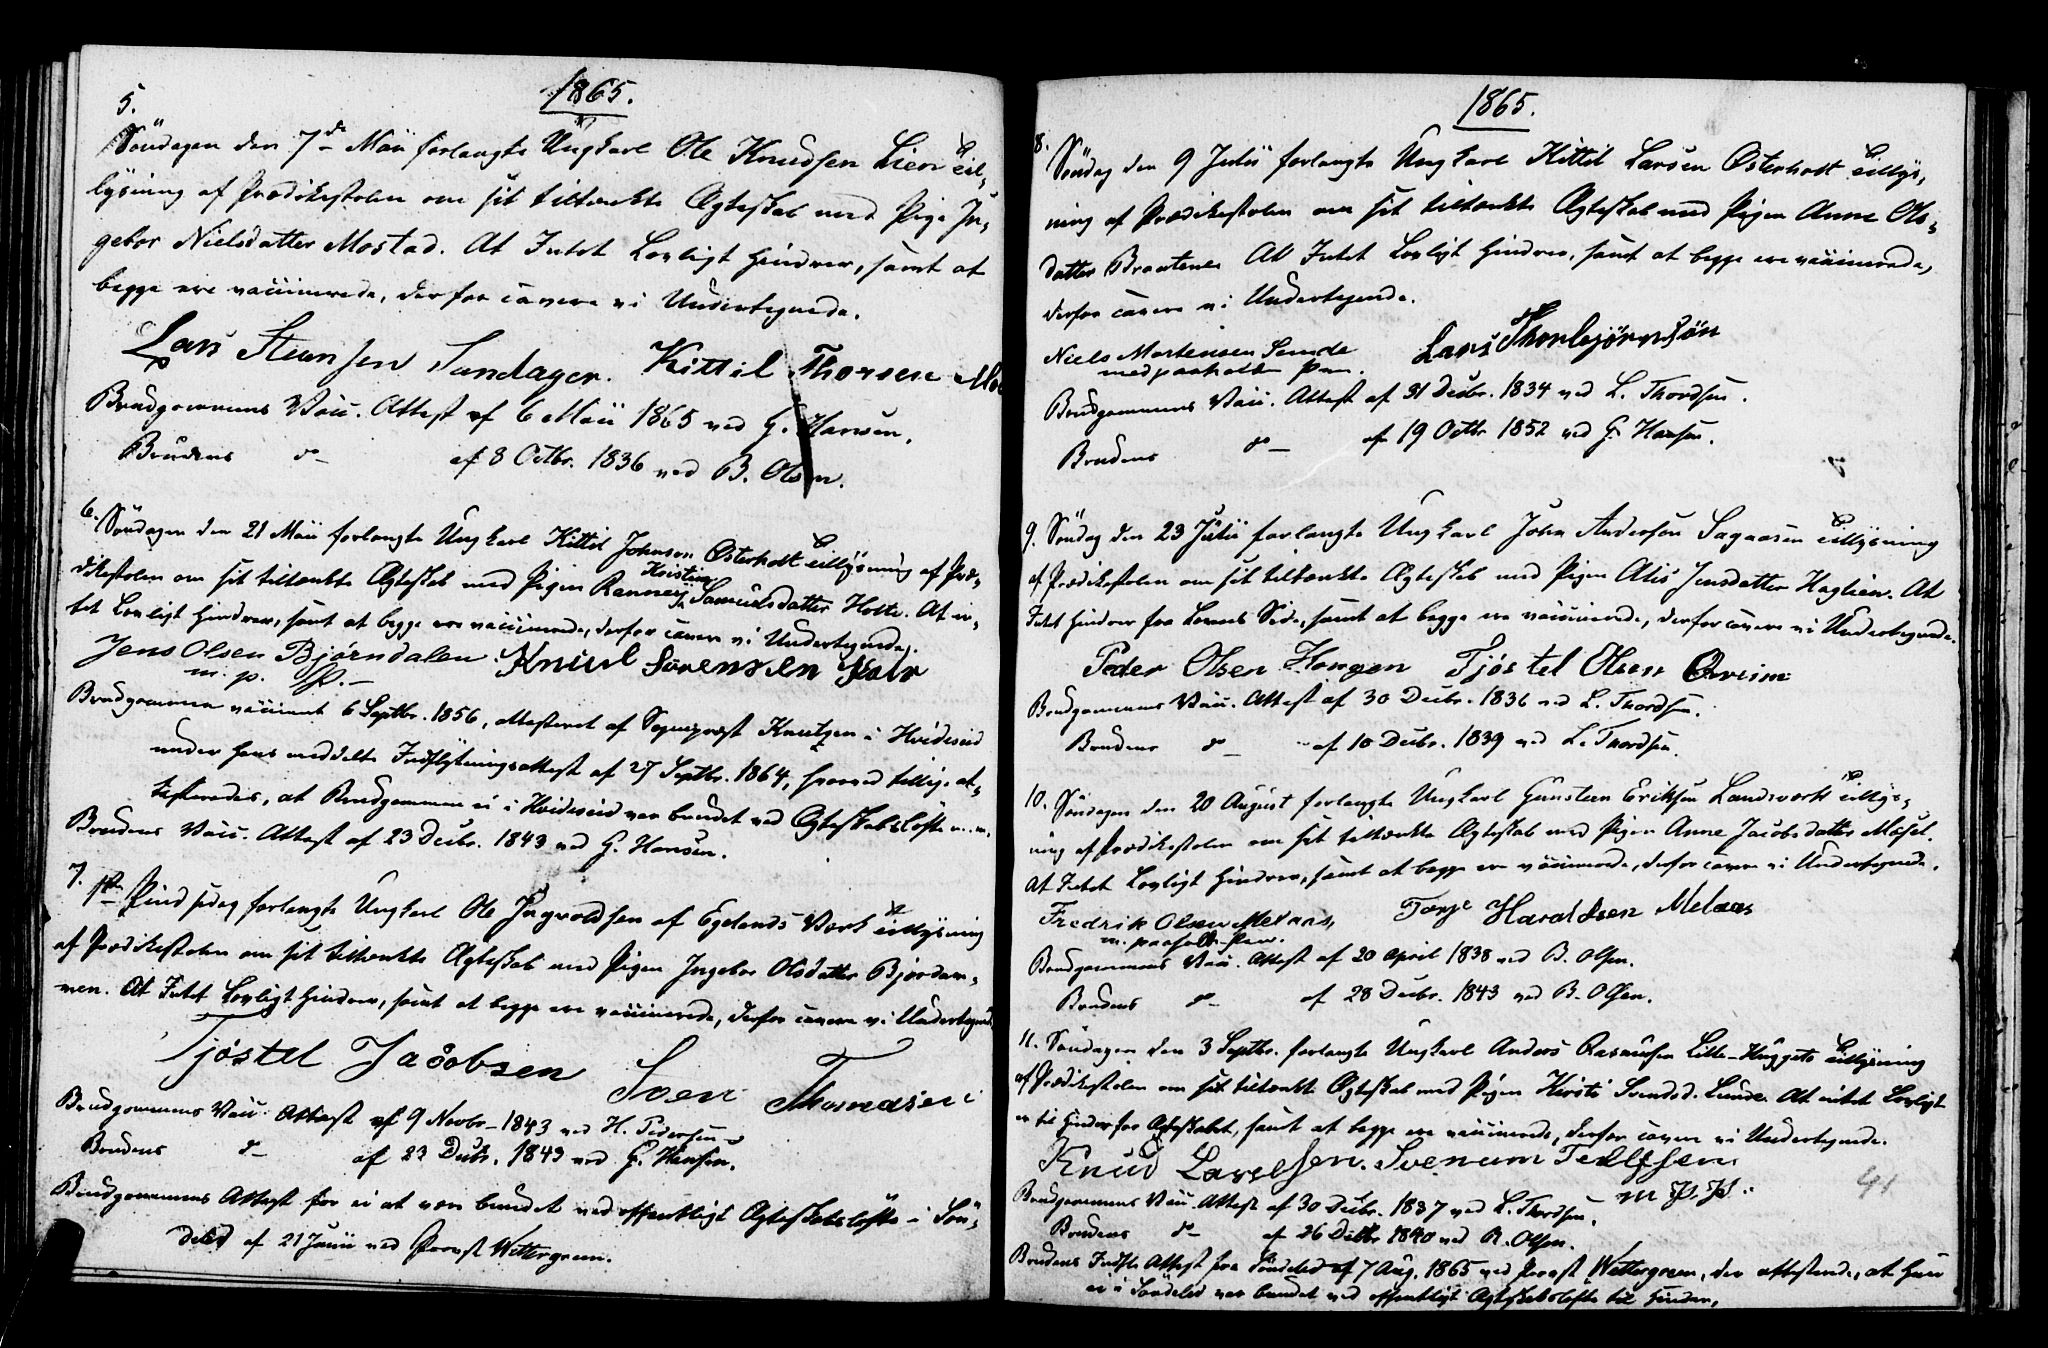 1865.
5.
Søndagen den 7de Mäii forlangte Ungkarl Ole Knudsen Lien Til-
lysning af Prædikestolen om sit tiltænkte Ægteskab med Pige In-
gebor Nielsdatter Mostad. At Intet Lovligt hindrer, samt at
begge ere vaccinerede, derfor cavere vi Undertegnede.
Lars Steansen Sundager. Kittil Thorsen Mo
Brudgommens Vacc. Attest af 6 Mäii 1865 ved G. Hansen.
Brudens do af 8 Octbr. 1836 ved B. Olsen.
6. Søndagen den 21 Mäii forlangte Ungkarl Kittil Johnsen Østerholt Tillysning af Præ-
dikestolen om sit tiltænkte Ægteskab med Pigen Ranney Kristine Samuelsdatter Holte. At in-
tet Lovligt hindrer, samt at begge ere vaccinerede, derfor cavere vi Undertegnede.
Jens Olsen Bjørndalen. Knud Sørensen
m. p. P.
Brudgommen vaccineret 6 Septbr. 1856, attesteret af Sognepræst Knutzen i Hvideseid
under hans meddelte Indflytningsattest af 27 Septbr. 1864, hvorved tillige at-
testeredes, at Brudgommen ei i Hvideseid var bundet ved Ægteskabsløfte
Brudens Vacc. Attest af 23 Decbr. 1843 ved G. Hansen.
7. 1ste Pindsedag forlangte Ungkarl Ole Ingvoldsen af Egelands Værk Tillysning
af Prædikestolen om sit tiltænkte Ægteskab med Pigen Ingebor Olsdatter Bjordam-
men. At Intet Lovligt hindrer, samt at begge ere vaccinerede, derfor cavere vi Undertegnede
Tjøstel Jacobsen Sven Thomasen
Brudgommens Vacc. Attest af 9 Novbr. 1843 ved H. Pedersen
Brudens do af 23 Decbr. 1843 ved G. Hansen.
Brudgommens Attest for ei at være bundet ved offentligt Ægteskabsløfte i Sön-
deled af 21 Junii ved Provst Wettergreen.
1865.
8. Søndag den 9 Julii forlangte Ungkarl Kittil Larsen Østerholt Tillys-
ning af Prædikestolen om sit tiltænkte Ægteskab med Pigen Anne Ols-
datter Braatene. At Intet Lovligt hindrer, samt at begge ere vaccinerede,
derfor cavere vi Undertegnede.
Niels Mortensen Lars Thorbjørnsøn
med paaholden Pen.
Brudgommens Vacc. Attest af 31 Decbr. 1834 ved L. Thordsen.
Brudens do af 19 Octbr 1852 ved G. Hansen.
9. Søndag den 23 Julii forlangte Ungkarl John Andersen Sagaasen Tillysning
af Prædikestolen om sit tiltænkte Ægteskab med Pigen Alis Jensdatter Haglien. At
Intet hindrer fra Lovens Side, samt at begge ere vaccinerede, derfor cavere vi Undertegnede.
Peder Olsen Tjøstel Olsen
Brudgommens Vacc. Attest af 30 Decbr. 1836 ved L. Thordsen.
Brudens do af 10 Decbr. 1839 ved L. Thordsen.
10. Søndagen den 20 August forlangte Ungkarl Gunsteen Eriksen Landsverk Tillys-
ning af Prædikestolen om sit tiltænkte Ægteskab med Pigen Anne Jacobsdatter Møsel.
At Intet Lovligt hindrer, samt at begge ere vaccinerede, derfor cavere vi Undertegnede.
Fredrik Olsen Melaas, Torje Haraldsen Melaas
m. paaholden Pen.
Brudgommens Vacc. Attest af 20 April 1838 ved B. Olsen.
Brudens do af 28 Decbr. 1843 ved B. Olsen.
11. Søndagen den 3 Septbr. forlangte Ungkarl Anders Rasmusen Lille-Hugget Tillysning
af Prædikestolen om sit tiltænkte Ægteskab med Pigen Kirsti Svendsd. Lunde. At intet Lovligt
er til Hinder for Ægteskabet, samt at begge ere vaccinerede, derfor cavere vi Undertegnede.
Knud Svenum Tellefsen
m. P. P.
Brudgommens Vacc. Attest af 30 Decbr. 1837 ved L. Thordsen.
Brudens do af 26 Decbr 1840 ved R. Olsen.
Brudens Indfl. Attest fra Söndeled af 7 Aug. 1865 ved Provst Wettergreen, der attesterede, at hun
ei i Söndeled var bundet ved offentligt Ægteskabsløfte til Hinder.
41